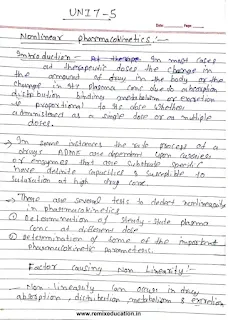 UNIT-5
Nonlinear pharmacokinetics :-
Introduction - At therape In most cases
at therapeutic doses the change in
the amount of drug in the body or the
change in its plasma conc due to absorption
distribution binding metabolism or excretion
is proportional to its dose whether
administered as a single dose or as multiple
doses.
→ In some instances the rate process of a
drug's ADME are dependent upon carriers
or enzymes that are substrate specific
have definite capacities & susceptible to
saturation at high drug conc.
→ There are several tests to detect nonlinearity
in pharmacokinetics
① Determination of steady-state plasma
conc at different dose
② Determination of some of the important
pharmacokinetic parameters.
Factor causing Non Linearity :-
Non-linearity can occur in drug
absorption, distribution metabolism & excretion
www.remixeducation.in